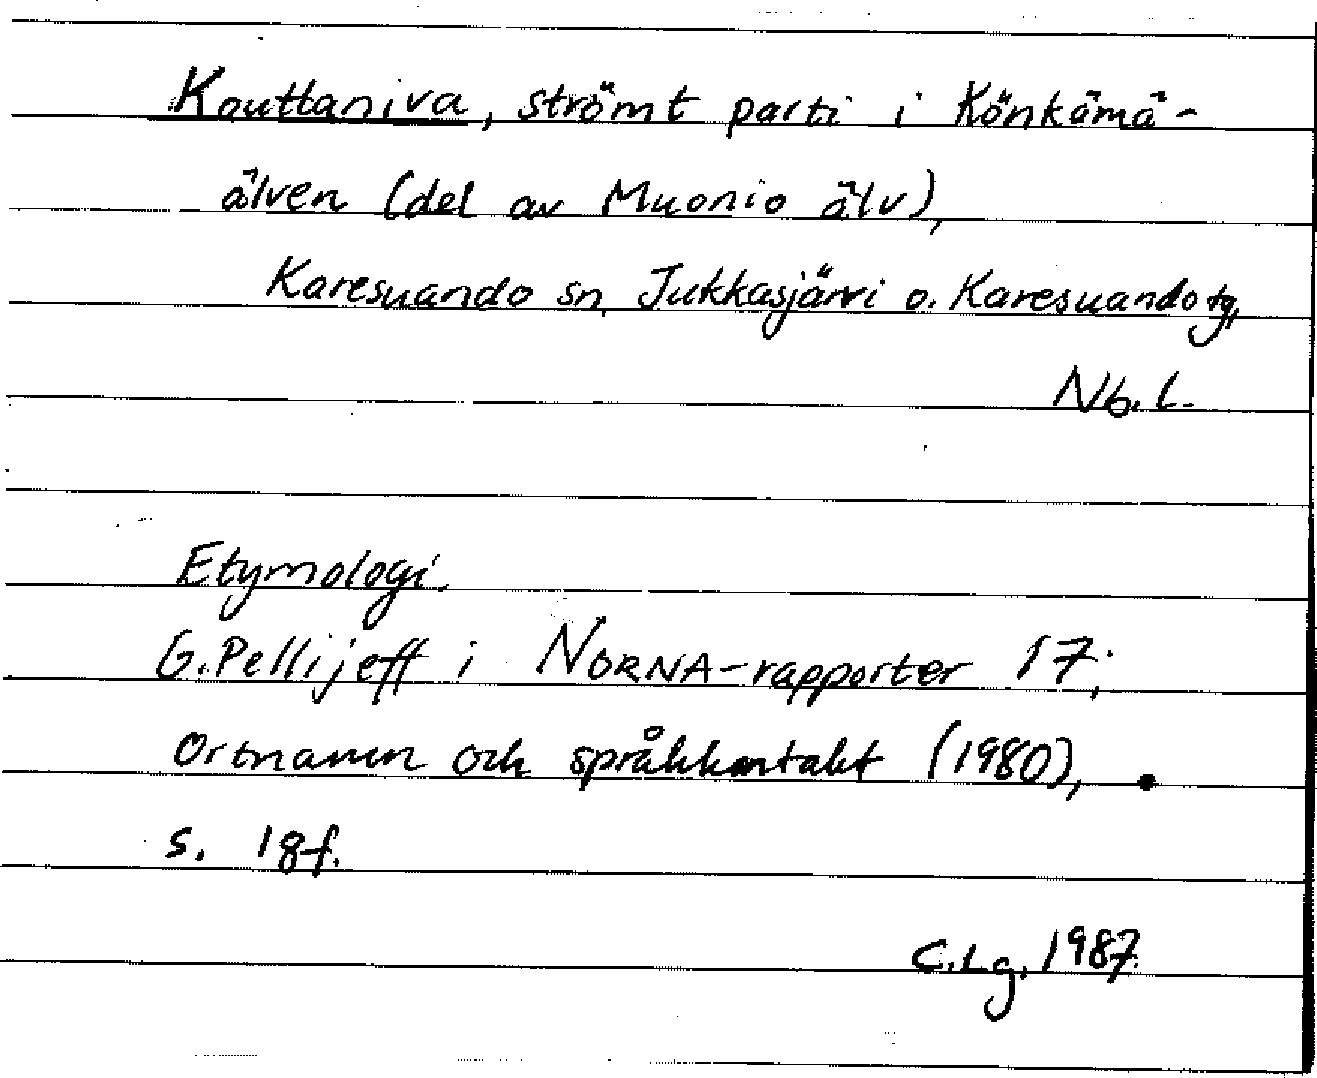 Kouttaniva, strömt parti i Könkämä-
älven (del av Muonio älv),
Karesuando sn, Jukkasjärvi o. Karesuando tg,
Nb. l.
Etymologi.
G. Pellijeff i NORNA-rapporter 17;
Ortnamn och språkkontakt (1980),
s. 18f.
C.Lg. 1987.